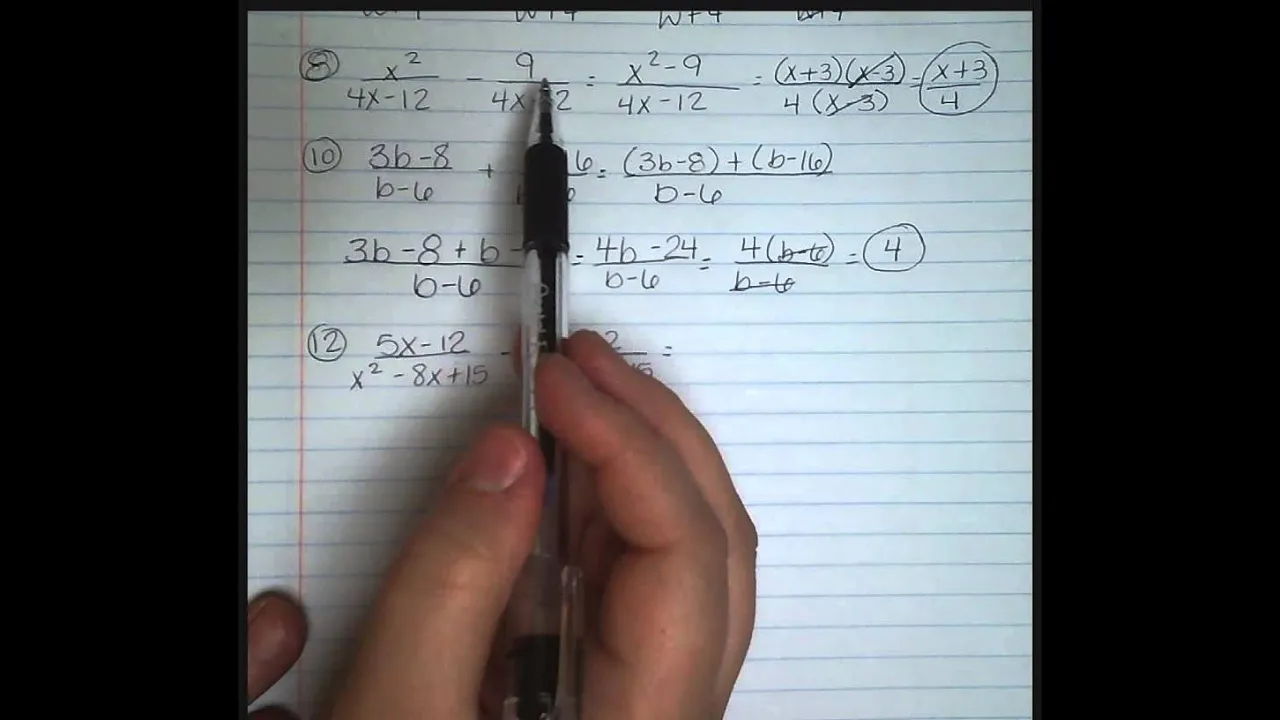 (8) x²/(4x-12) - 9/(4x-12) = (x²-9)/(4x-12) = (x+3)(x-3)/4(x-3) = (x+3)/4
(10) (3b-8)/(b-6) + 16 = ((3b-8)+(b-16))/(b-6)
(3b-8+b-)/(b-6) = (4b-24)/(b-6) = 4(b-6)/(b-6) = 4
(12) (5x-12)/(x²-8x+15) - 2/15 =